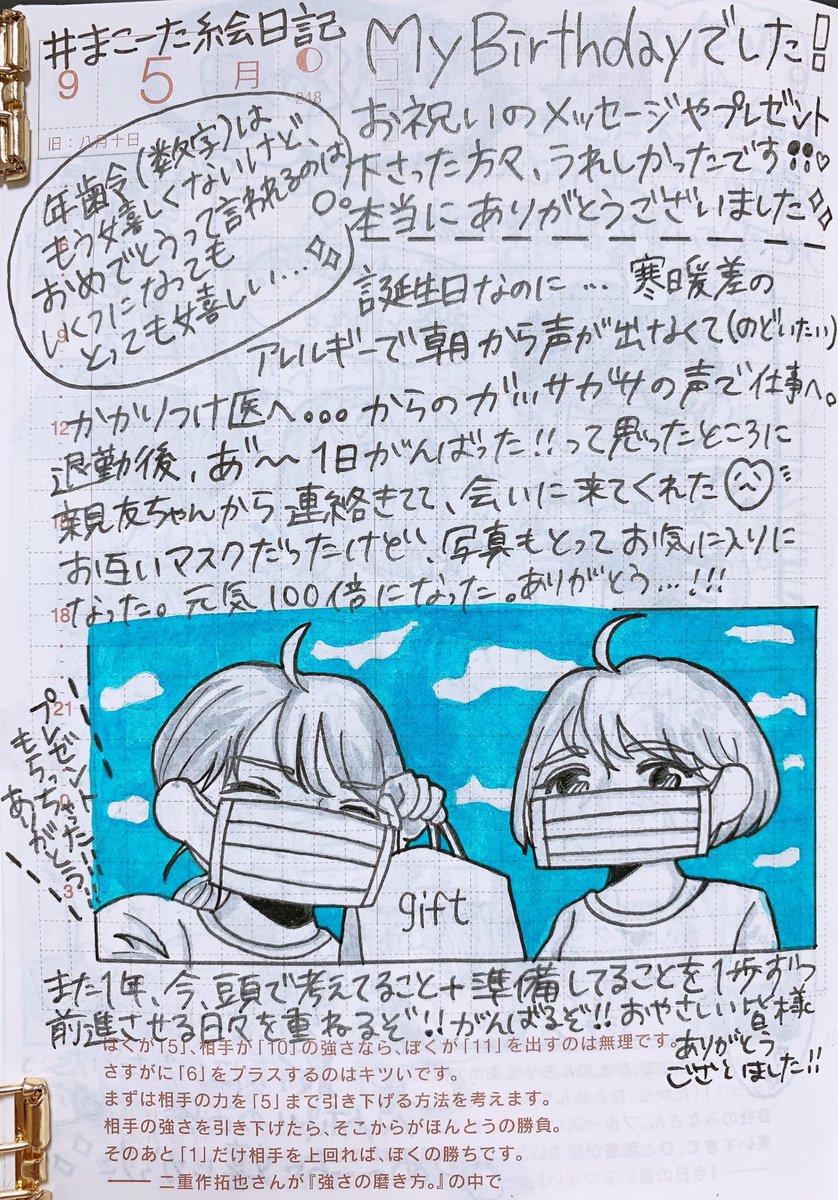 #まこーた絵日記
9 5 月
248
旧:八月十日
My Birthdayでした!
お祝いのメッセージやプレゼント
下さった方々、うれしかったです!!♡
本当にありがとうございました
年齢(数字)は
もう嬉しくないけど、
おめでとうって言われるのは
いくつになっても
とっても嬉しい…
誕生日なのに… 寒暖差の
アレルギーで朝から声が出なくて(のどいたい)
かかりつけ医へ。。。からのガッサガサの声で仕事へ。
退勤後、あ゛〜1日がんばった!!って思ったところに
親友ちゃんから連絡きてて、会いに来てくれた
お互いマスクだったけど、写真もとってお気に入りに
なった。元気100倍になった。ありがとう…!!!
9
12
18
21
3
プレゼント
もらっちゃった!!
ありがとう!!
gift
また1年、今、頭で考えてること+準備してることを1歩ずつ
前進させる日々を重ねるぞ!!がんばるぞ!!おやさいい皆様
ありがとう
ござしました!!
ぼくが「5」、相手が「10」の強さなら、ぼくが「11」を出すのは無理です。
さすがに「6」をプラスするのはキツいです。
まずは相手の力を「5」まで引き下げる方法を考えます。
相手の強さを引き下げたら、そこからがほんとうの勝負。
そのあと「1」だけ相手を上回れば、ぼくの勝ちです。
―― 二重作拓也さんが『強さの磨き方。』の中で